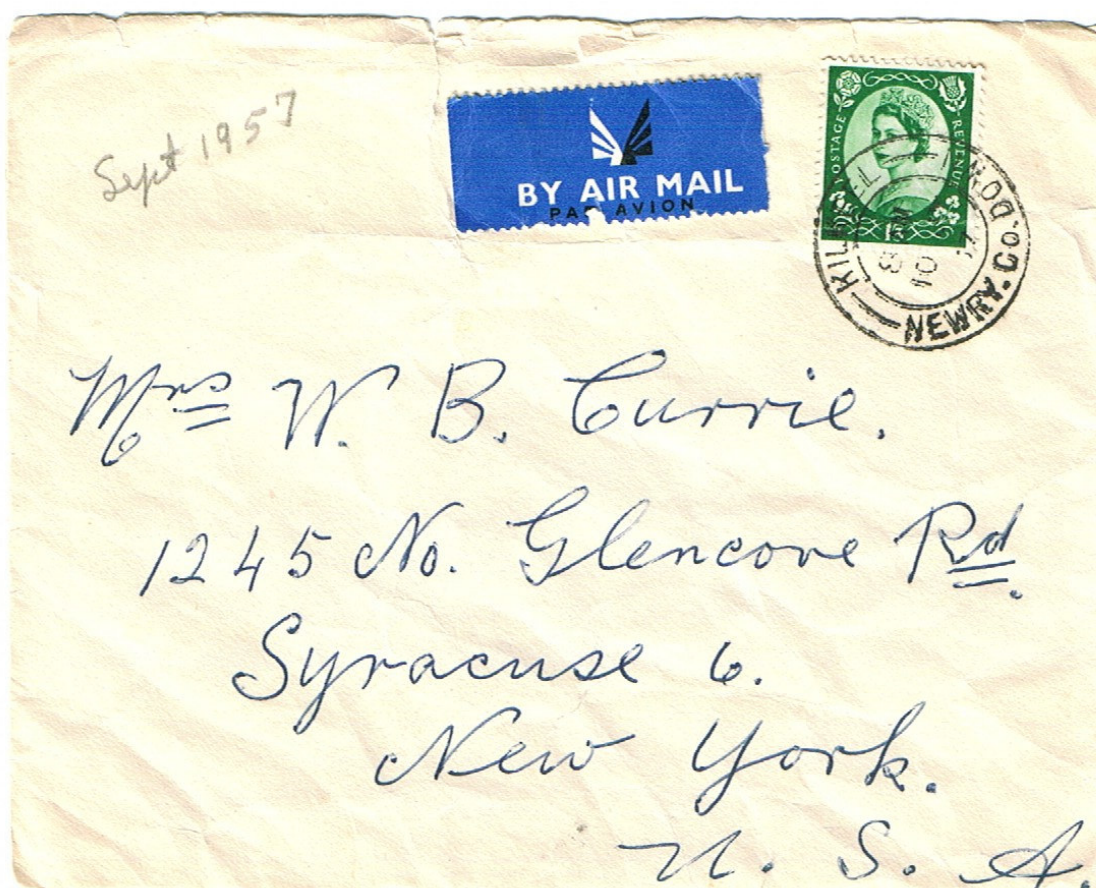 Sept 1957
BY AIR MAIL
PAR AVION
POSTAGE REVENUE
NEWRY. Co. DOWN
Mrs W. B. Currie.
1245 No. Glencove Rd.
Syracuse 6.
New York.
U. S. A.